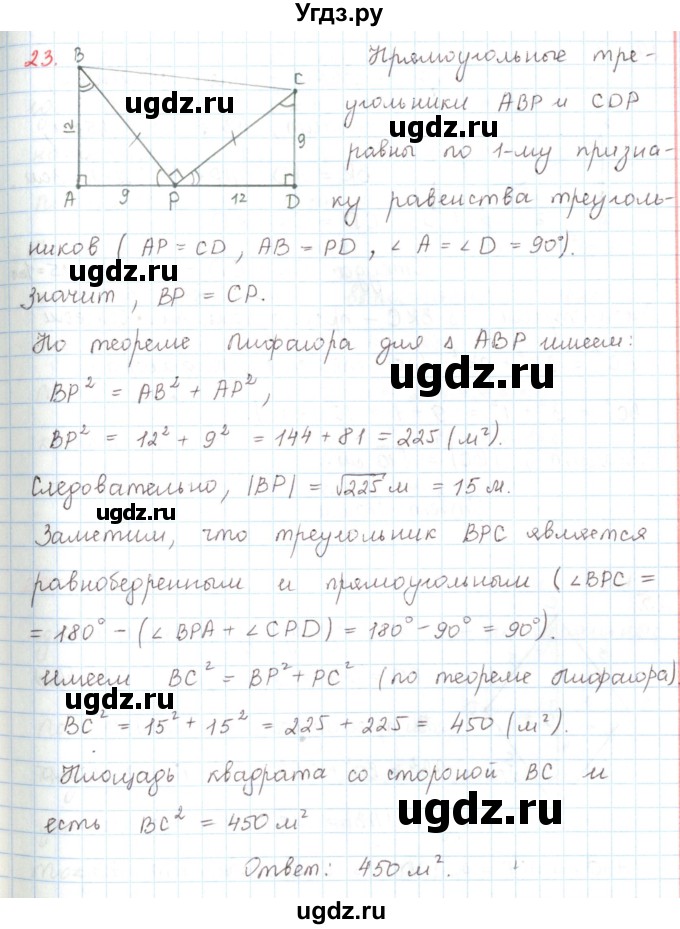 Угдз.ру
23.
B
C
12
9
A
9
P
12
D
Прямоугольные тре-
угольники ABP и CDP
равны по 1-му призна-
ку равенства треуголь-
ников ( AP = CD , AB = PD , ∠ A = ∠ D = 90°).
Значит , BP = CP.
По теореме Пифагора для Δ ABP имеем:
BP² = AB² + AP² ,
BP² = 12² + 9² = 144 + 81 = 225 (м²).
Следовательно, |BP| = √225 м = 15 м.
Заметим, что треугольник BPC является
равнобедренным и прямоугольным ( ∠BPC =
= 180° − (∠ BPA + ∠ CPD) = 180° − 90° = 90°).
Имеем BC² = BP² + PC² (по теореме Пифагора)
BC² = 15² + 15² = 225 + 225 = 450 (м²).
Площадь квадрата со стороной BC и
есть BC² = 450 м²
Ответ: 450 м².
ugdz.ru
ugdz.ru
ugdz.ru
ugdz.ru
ugdz.ru
ugdz.ru
ugdz.ru
ugdz.ru